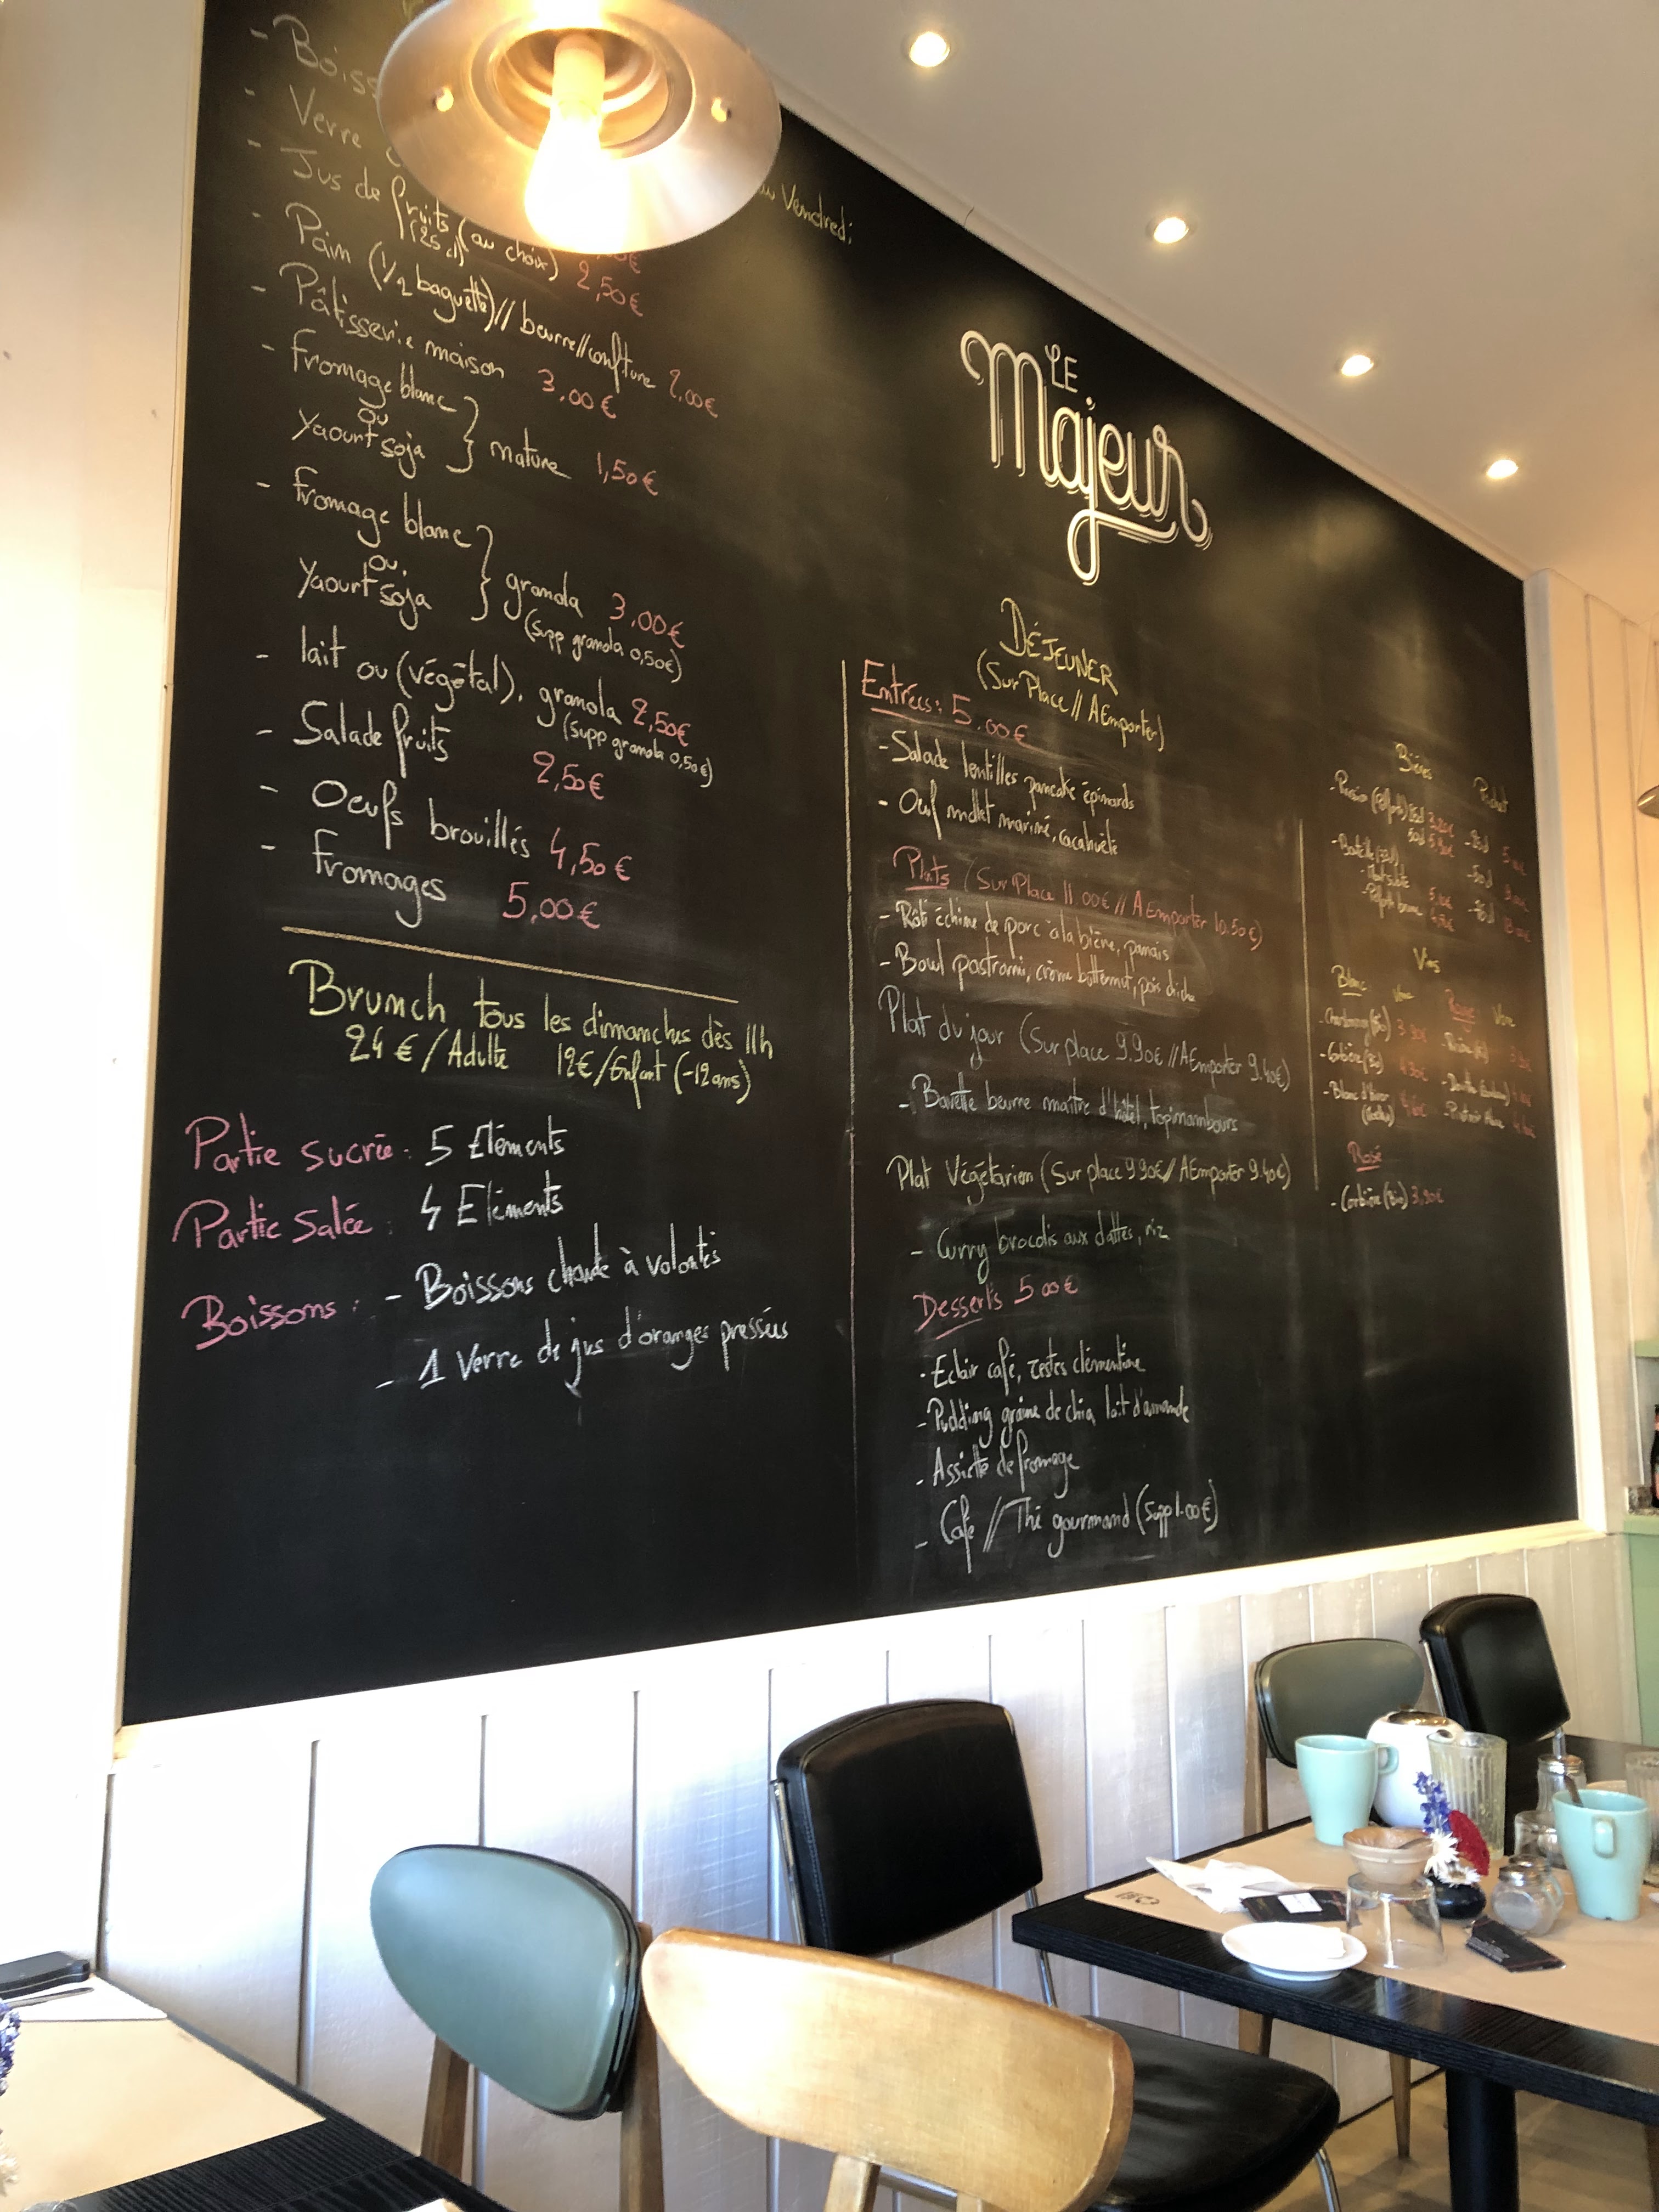 - Boiss
- Verre
- Jus de fruits (au choix)
(25 cl) 2,50€
au Vendredi
- Pain (1/2 baguette)// beurre//confiture 2,00€
- Pâtisserie maison 3,00€
- fromage blanc
ou
Yaourt soja } nature 1,50€
- fromage blanc
ou
Yaourt soja } granola 3,00€
(supp granola 0,50€)
- lait ou (végétal), granola 2,50€
(supp granola 0,50€)
- Salade fruits 2,50€
- Oeufs brouillés 4,50€
- fromages 5,00€
Brunch tous les dimanches dès 11h
24€/Adulte 12€/Enfant (-12ans)
Partie sucrée : 5 Eléments
Partie Salée : 4 Eléments
Boissons : - Boissons chaude à volontés
- 1 Verre de jus d'oranges pressées
LE
Majeur
DÉJEUNER
(Sur Place // A Emporter)
Entrées : 5.00€
- Salade lentilles pancake épinards
- Oeuf mollet mariné, cacahuète
Plats (Sur Place 11.00€ // A Emporter 10.50€)
- Rôti échine de porc à la bière, panais
- Bowl pastrami, crème butternut, pois chiche
Plat du jour (Sur place 9.90€ // A Emporter 9.40€)
- Bavette beurre maître d'hôtel, topinambours
Plat Végétarien (Sur place 9.90€ // A Emporter 9.40€)
- Curry brocolis aux dattes, riz
Desserts 5.00€
- Eclair café, zestes clémentine
- Pudding graine de chia, lait d'amande
- Assiette de fromage
- Café // Thé gourmand (Supp 1.00€)
Bières
Pichet
- Bouteille (33cl)
Vins
Blanc Verre Rouge Verre
- Chardonnay (Bio)
- Corbière (Bio)
- Blanc d'hiver
Rosé
- Corbière (Bio) 3,90€